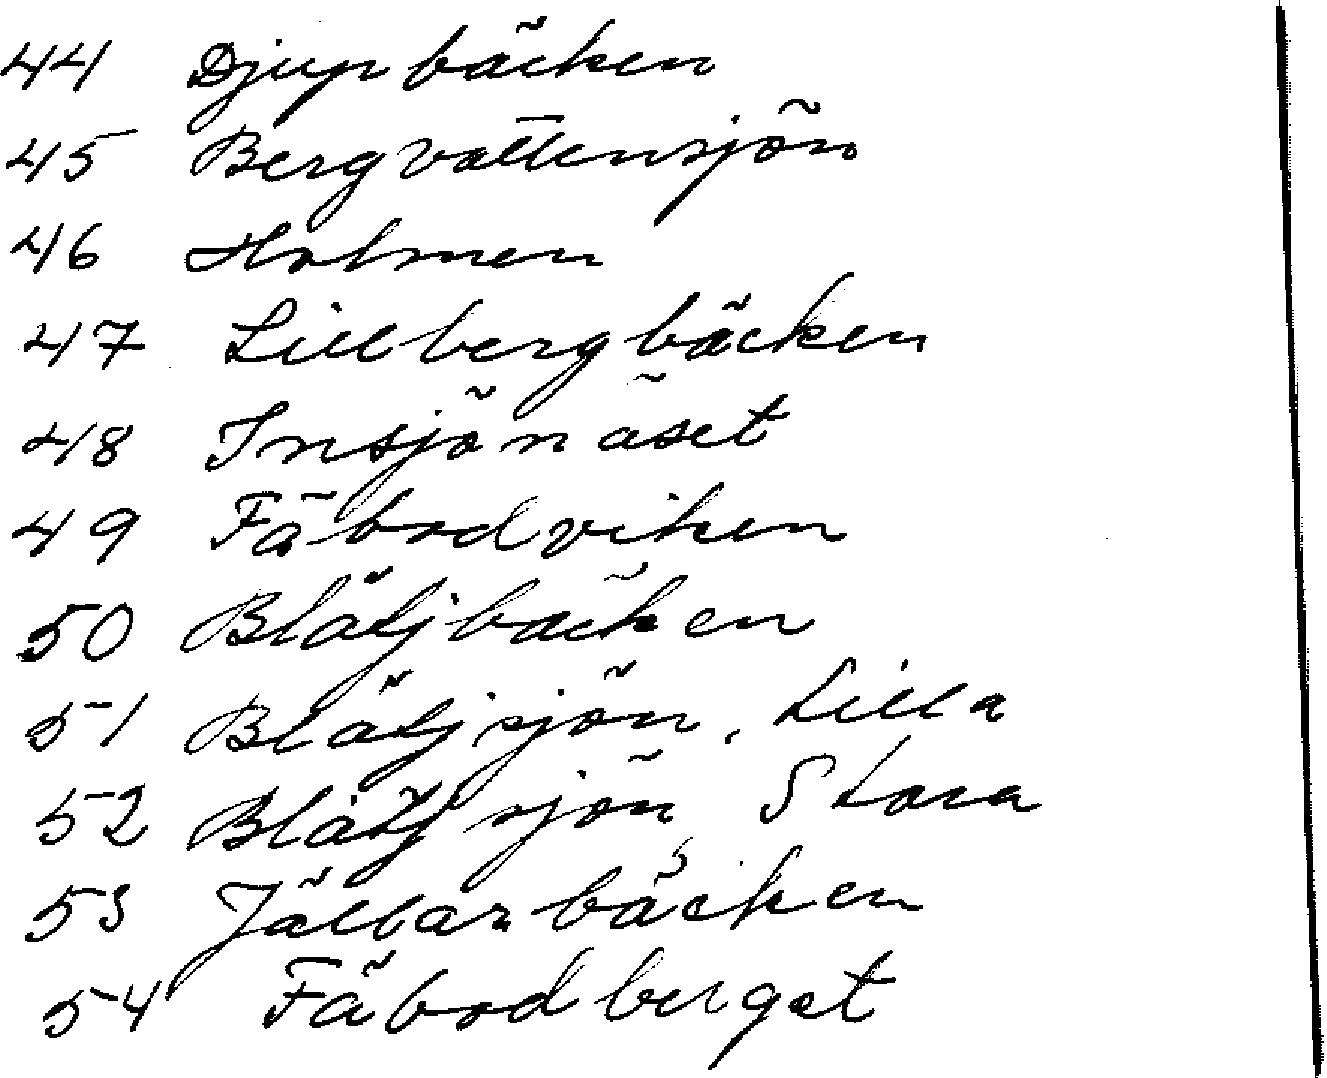 44 Djupbäcken
45 Bergvattensjön
46 Holmen
47 Lillbergbäcken
48 Insjönäset
49 Fäbodviken
50 Blätjbäcken
51 Blätjsjön, Lilla
52 Blätjsjön, Stora
53 bäcken
54 Fäbodberget